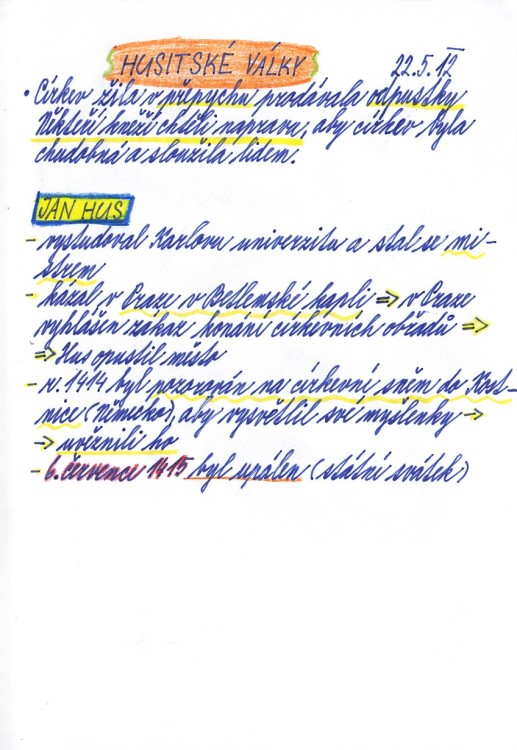 HUSITSKÉ VÁLKY 22.5.12
• Církev žila v přepychu prodávala odpustky
Někteří kněží chtěli nápravu, aby církev byla
chudobná a sloužila lidem.
JAN HUS
- vystudoval Karlovu univerzitu a stal se mi-
strem
- kázal v Praze v Betlémské kapli => v Praze
vyhlášen zákaz konání církevních obřadů =>
=> Hus opustil místo
- r. 1414 byl pozván na církevní sněm do Kost-
nice (Německo), aby vysvětlil své myšlenky ->
-> uvěznili ho
- 6. července 1415 byl upálen (státní svátek)